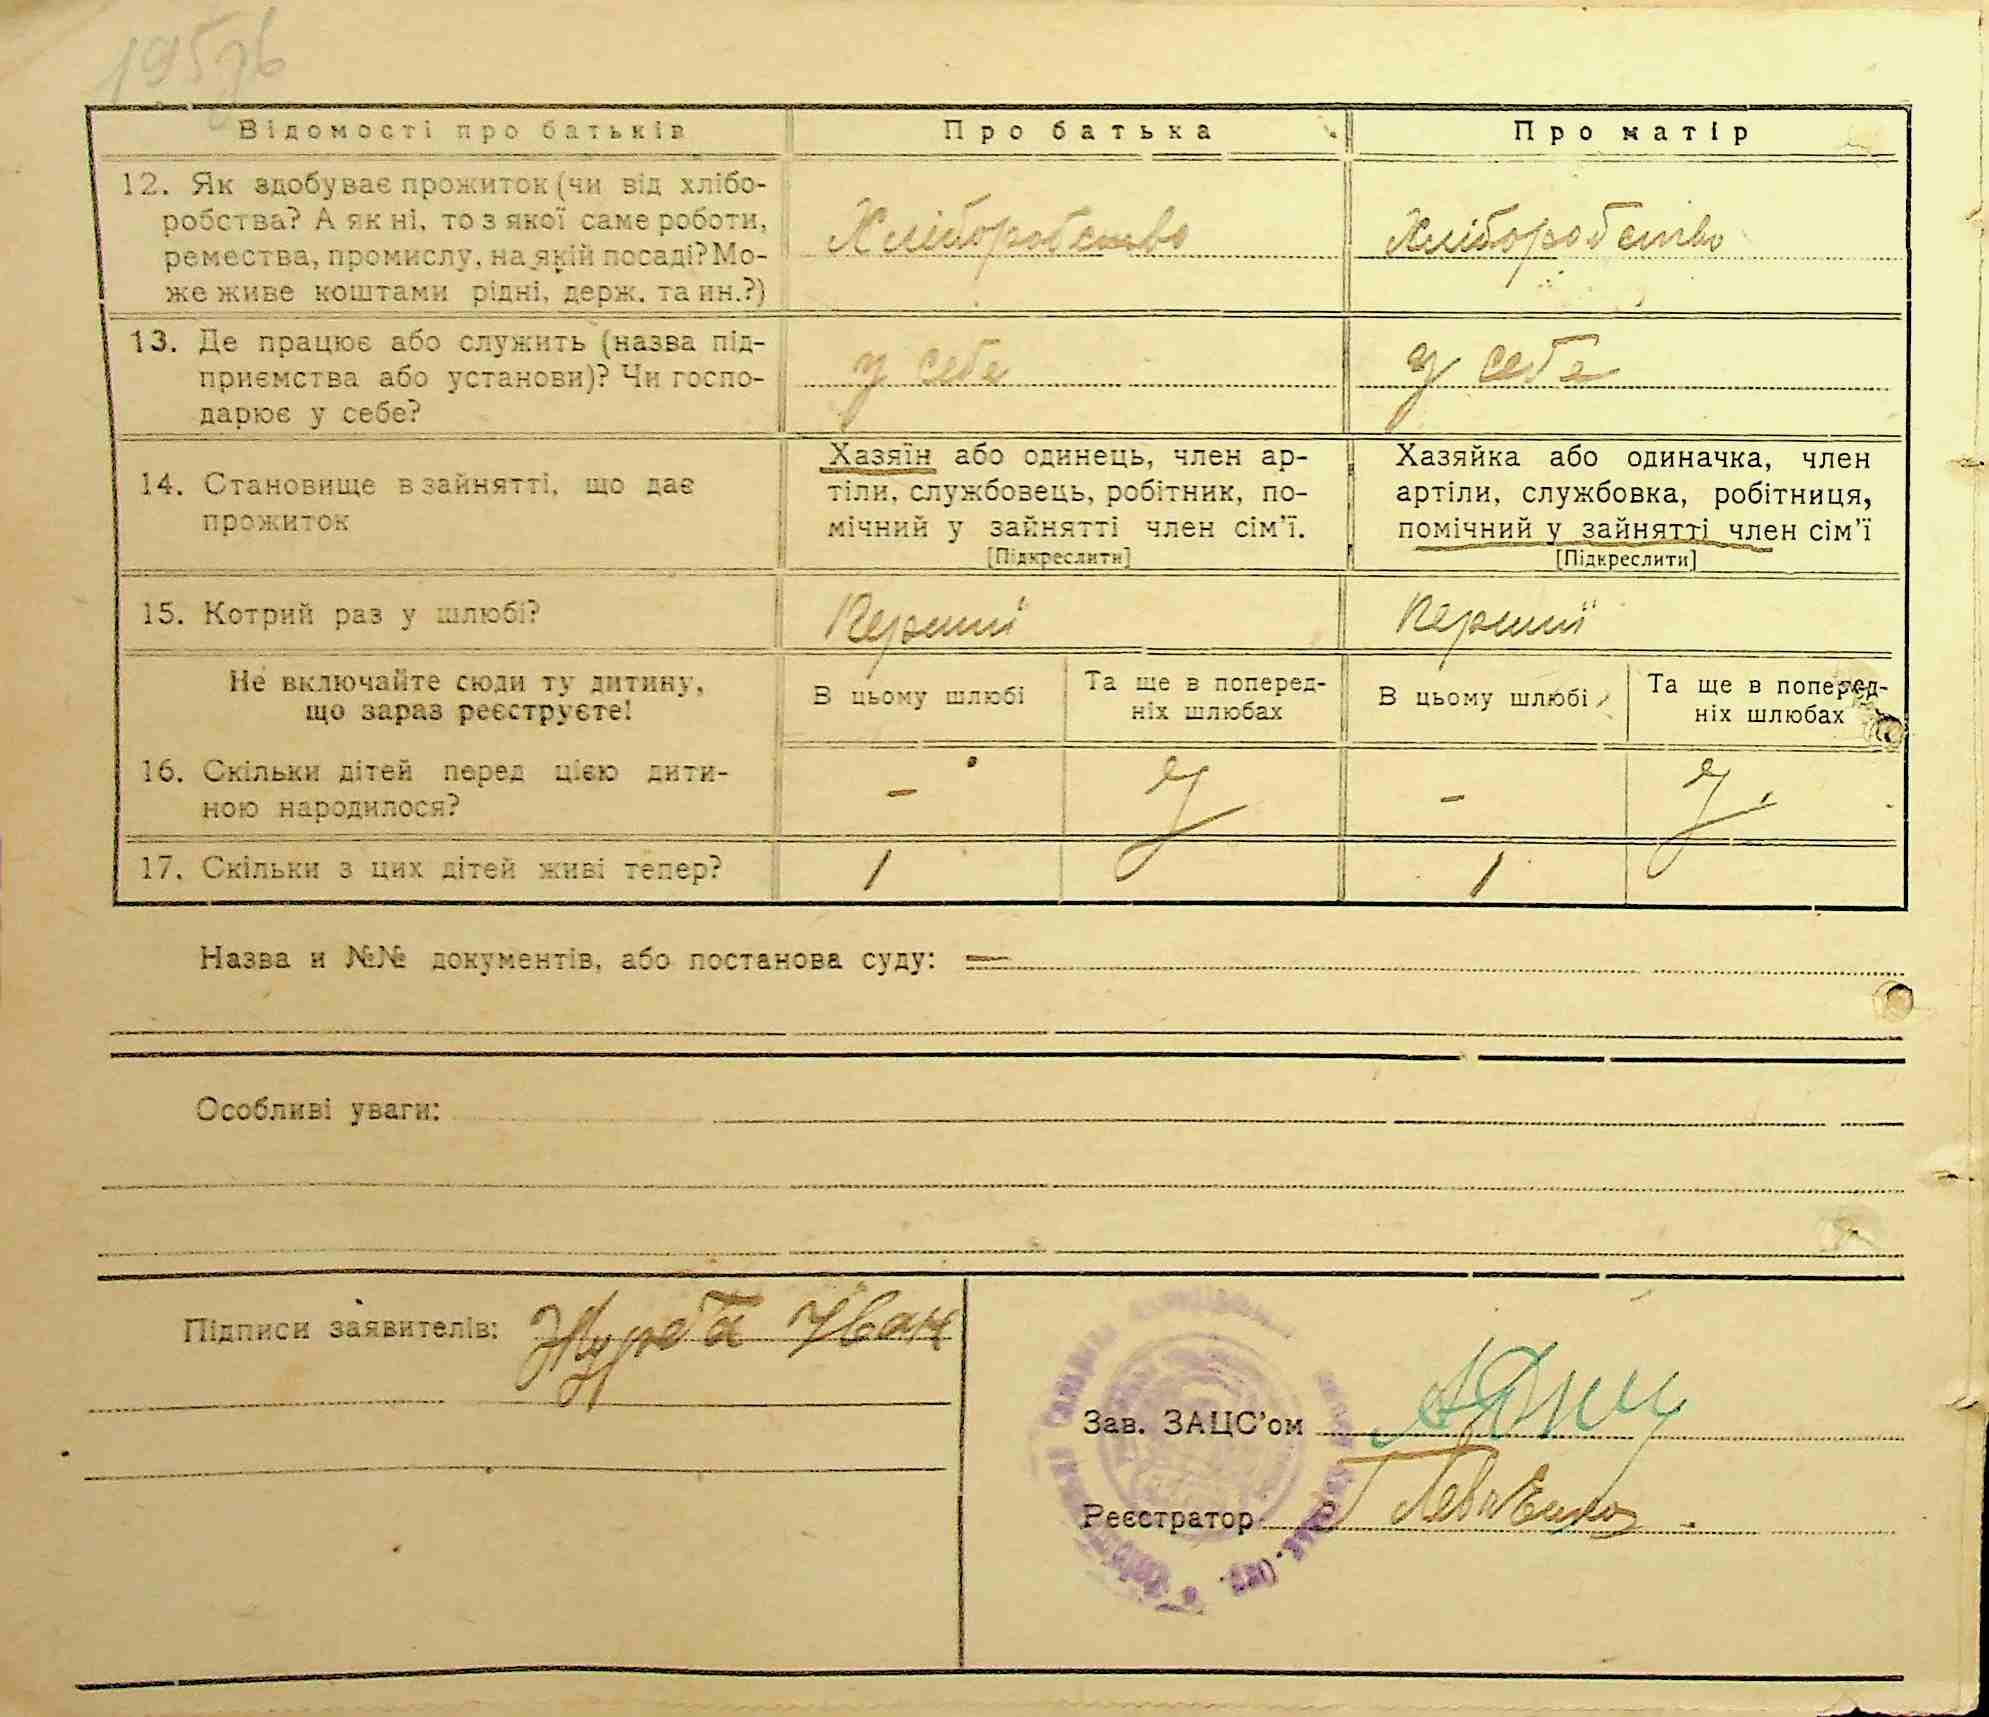 Відомості про батьків Про батька Про матір
12. Як здобуває прожиток (чи від хлібо-
робства? А як ні, то з якої саме роботи,
ремества, промислу, на якій посаді? Мо-
же живе коштами рідні, держ. та ин.?)
Хліборобство Хліборобство
13. Де працює або служить (назва під-
приємства або установи)? Чи госпо-
дарює у себе?
у себе у себе
14. Становище в зайнятті, що дає
прожиток
Хазяїн або одинець, член ар-
тіли, службовець, робітник, по-
мічний у зайнятті член сім'ї.
[Підкреслити]
Хазяйка або одиначка, член
артіли, службовка, робітниця,
помічний у зайнятті член сім'ї
[Підкреслити]
15. Котрий раз у шлюбі? Перший Перший
Не включайте сюди ту дитину,
що зараз реєструєте!
В цьому шлюбі
Та ще в поперед-
ніх шлюбах
В цьому шлюбі
Та ще в поперед-
ніх шлюбах
16. Скільки дітей перед цією дити-
ною народилося?
- -
17. Скільки з цих дітей живі тепер? 1 1
Назва и №№ документів, або постанова суду: =
Особливі уваги:
Підписи заявителів: Журба Иван
Зав. ЗАЦС'ом
Реєстратор